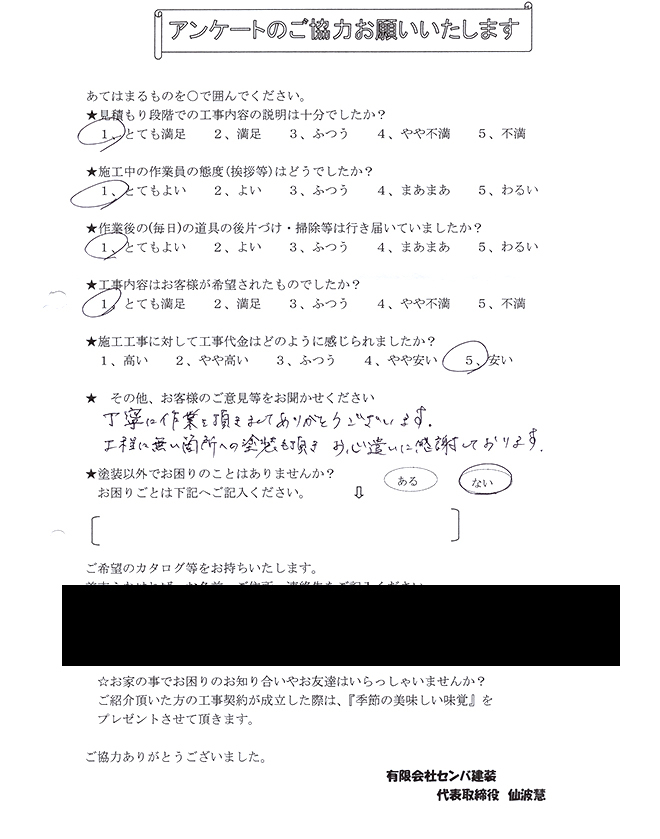 アンケートのご協力お願いいたします
あてはまるものを○で囲んでください。
★見積もり段階での工事内容の説明は十分でしたか？
1、とても満足　2、満足　3、ふつう　4、やや不満　5、不満
★施工中の作業員の態度(挨拶等)はどうでしたか？
1、とてもよい　2、よい　3、ふつう　4、まあまあ　5、わるい
★作業後の(毎日)の道具の後片づけ・掃除等は行き届いていましたか？
1、とてもよい　2、よい　3、ふつう　4、まあまあ　5、わるい
★工事内容はお客様が希望されたものでしたか？
1、とても満足　2、満足　3、ふつう　4、やや不満　5、不満
★施工工事に対して工事代金はどのように感じられましたか？
1、高い　2、やや高い　3、ふつう　4、やや安い　5、安い
★　その他、お客様のご意見等をお聞かせください
丁寧に作業を頂きましてありがとうございます.
工程に無い箇所への塗装も頂き お心遣いに感謝しております.
★塗装以外でお困りのことはありませんか？
ある　ない
お困りごとは下記へご記入ください。　⇩
ご希望のカタログ等をお持ちいたします。
☆お家の事でお困りのお知り合いやお友達はいらっしゃいませんか？
ご紹介頂いた方の工事契約が成立した際は、『季節の美味しい味覚』を
プレゼントさせて頂きます。
ご協力ありがとうございました。
有限会社センバ建装
代表取締役　仙波慧